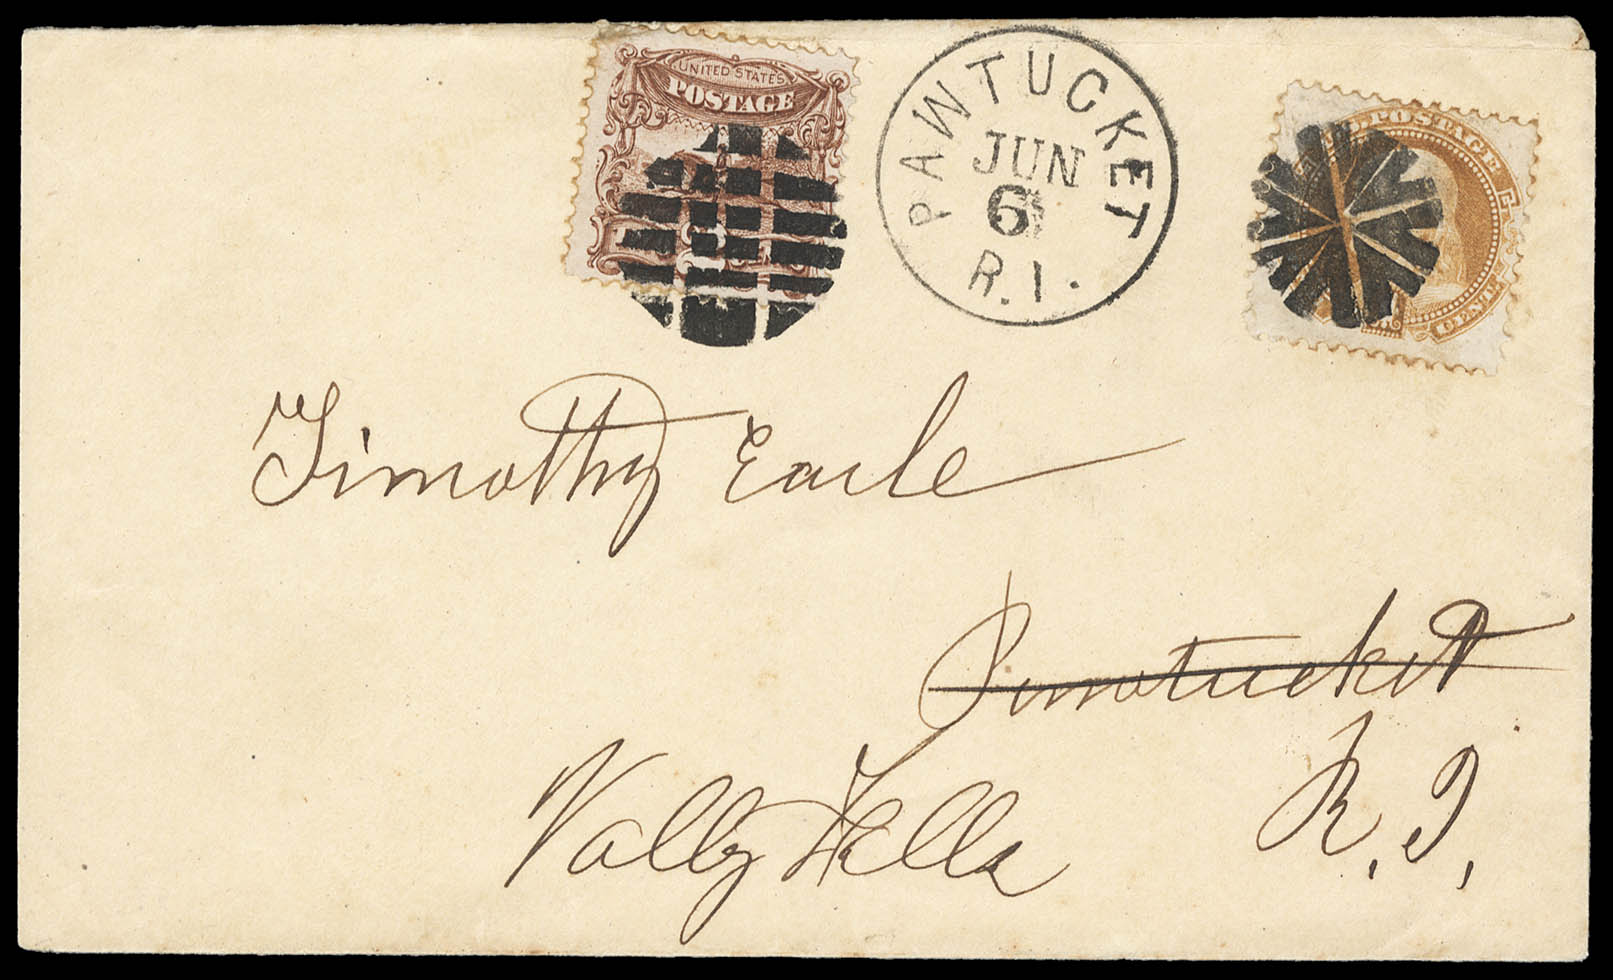 UNITED STATES
POSTAGE
PAWTUCKET
JUN
6
R.I.
POSTAGE
CENT
Timothy Earle
Pawtucket
Vally Falls R.I.